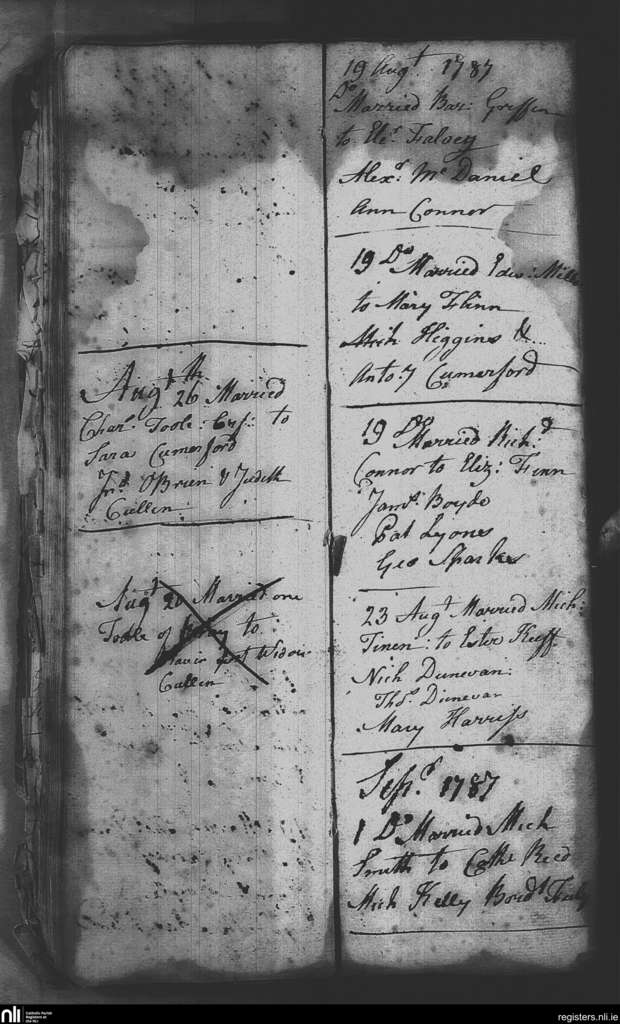 Augt 26th Married
Chars. Toole: Esqr: to
Sara Cumerford
Jnd. OBrien & Judith
Cullen
Augt 26 Married one
Toole of to
Widow
Cullen
19 Augt. 1787
Do Married Bar: Griffin
to Elir. Falvey
Alexr. Mc Daniel
Ann Connor
19 Do Married Edw: Mills
to Mary Flinn
Mich Higgins &
Anto:y Cumerford
19 Do Married Rich:d
Connor to Eliz: Finn
Jams. Boyde
Pat Lyones
Geo Sparkes
23 Augt Married Mich:
Tinen: to Ester Keeff
Nich Dunevan:
Thos. Dunevan
Mary Harriss
Sepr. 1787
1 Do Married Mich
Smith to Cathe Reed
Mich Kelly
nli
Catholic Parish
Registers at
the NLI
registers.nli.ie